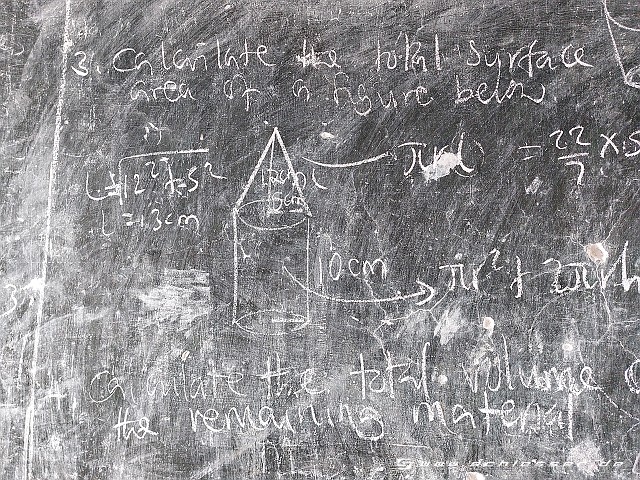 3. Calculate the total surface
area of a figure below
L = √12² + 5²
l = 13cm
12cm
l
5cm
πrl = 22/7 × 5
10cm
πr² + 2πrh
Calculate the total volume
the remaining material